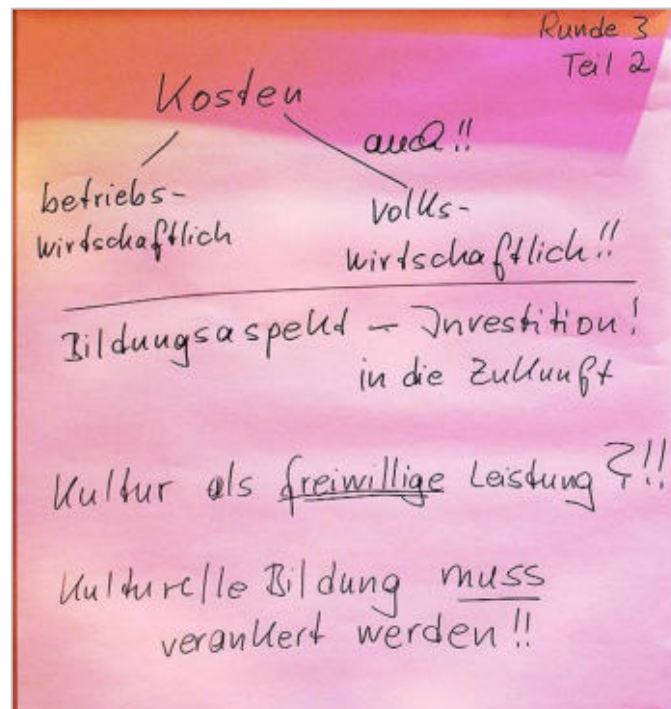 Runde 3
Teil 2
Kosten
auch!!
betriebs-
wirtschaftlich
volks-
wirtschaftlich!!
Bildungsaspekt – Investition!
in die Zukunft
Kultur als freiwillige Leistung?!!
Kulturelle Bildung muss
verankert werden!!